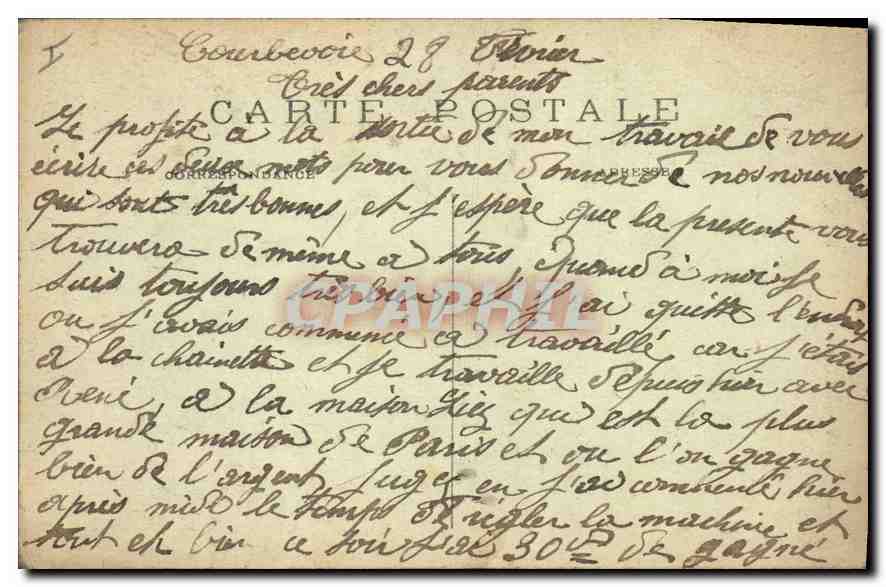 Courbevoie 28 Février
Très chers parents
CARTE POSTALE
Je profite à la sortie de mon travail de vous
écrire ces deux mots pour vous donner de nos nouvelles
CORRESPONDANCE
qui sont très bonnes, et j'espère que la presente vous
trouvera de même a tous Quand à moi je
suis toujours très bien, et j'ai quitté l'endroit
CPAPHIL
ou j'avais commencé à travaillé car j'étais
à la chainette et je travaille depuis hier avec
René, a la maison qui est la plus
grande maison de Paris et ou l'on gagne
bien de l'argent, jugez en j'ai commencé hier
après midi le temps de régler la machine et
tout eh bien ce soir j'ai 30 de gagné